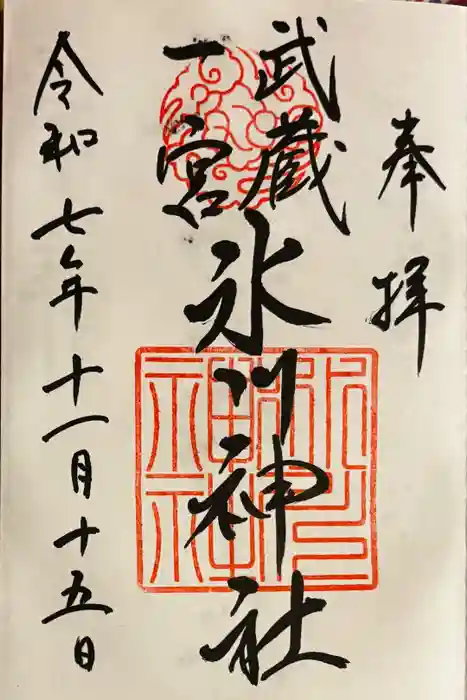 奉拝
武蔵
一宮
氷川神社
令和七年十一月十五日
氷川
神社